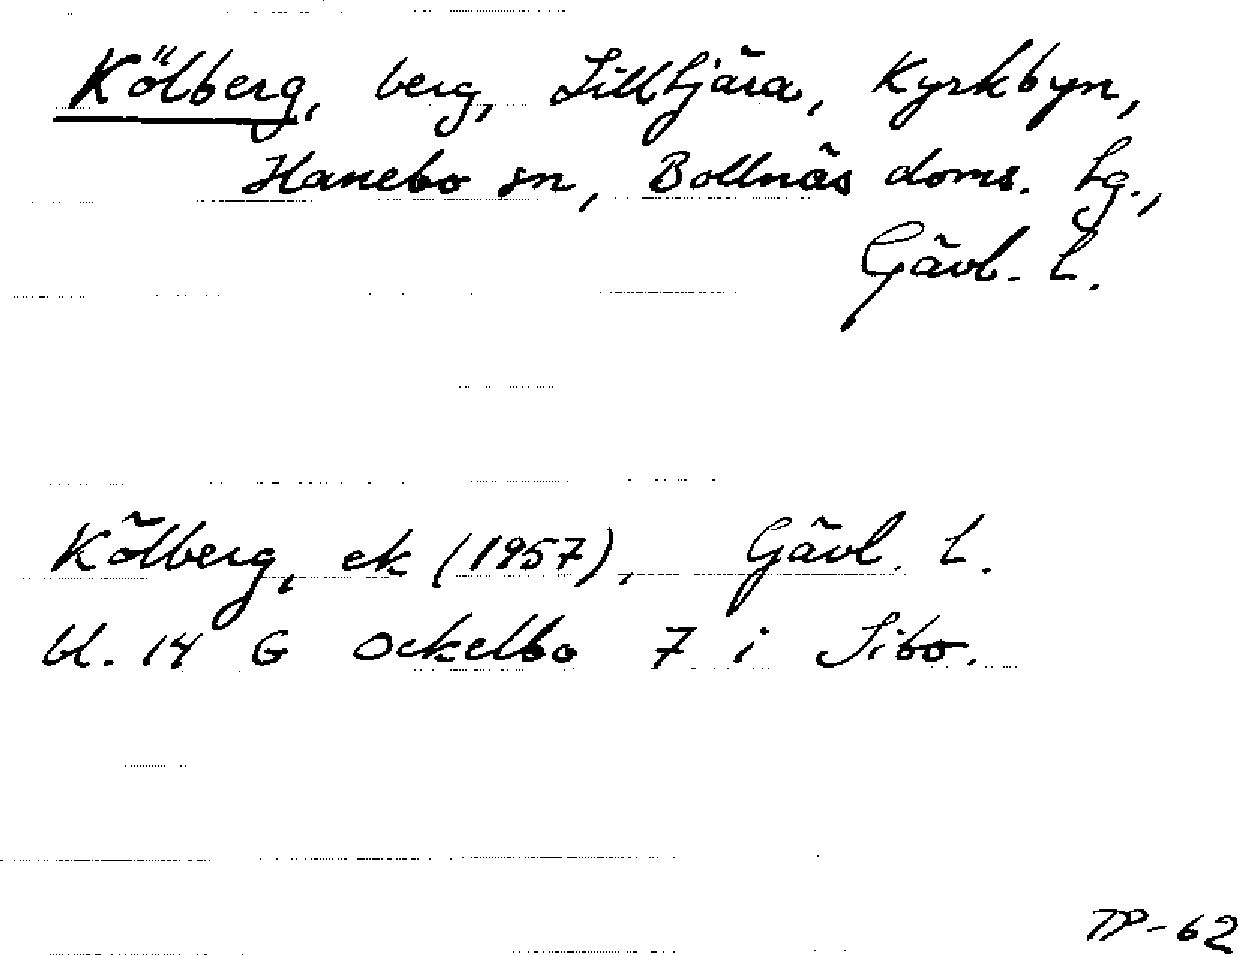 Kölberg, berg, Lilltjära, Kyrkbyn,
Hanebo sn, Bollnäs doms. tg.,
Gävl. l.
Kölberg, ek (1957), Gävl. l.
bl. 14 G Ockelbo 7 i Sibo.
TP-62